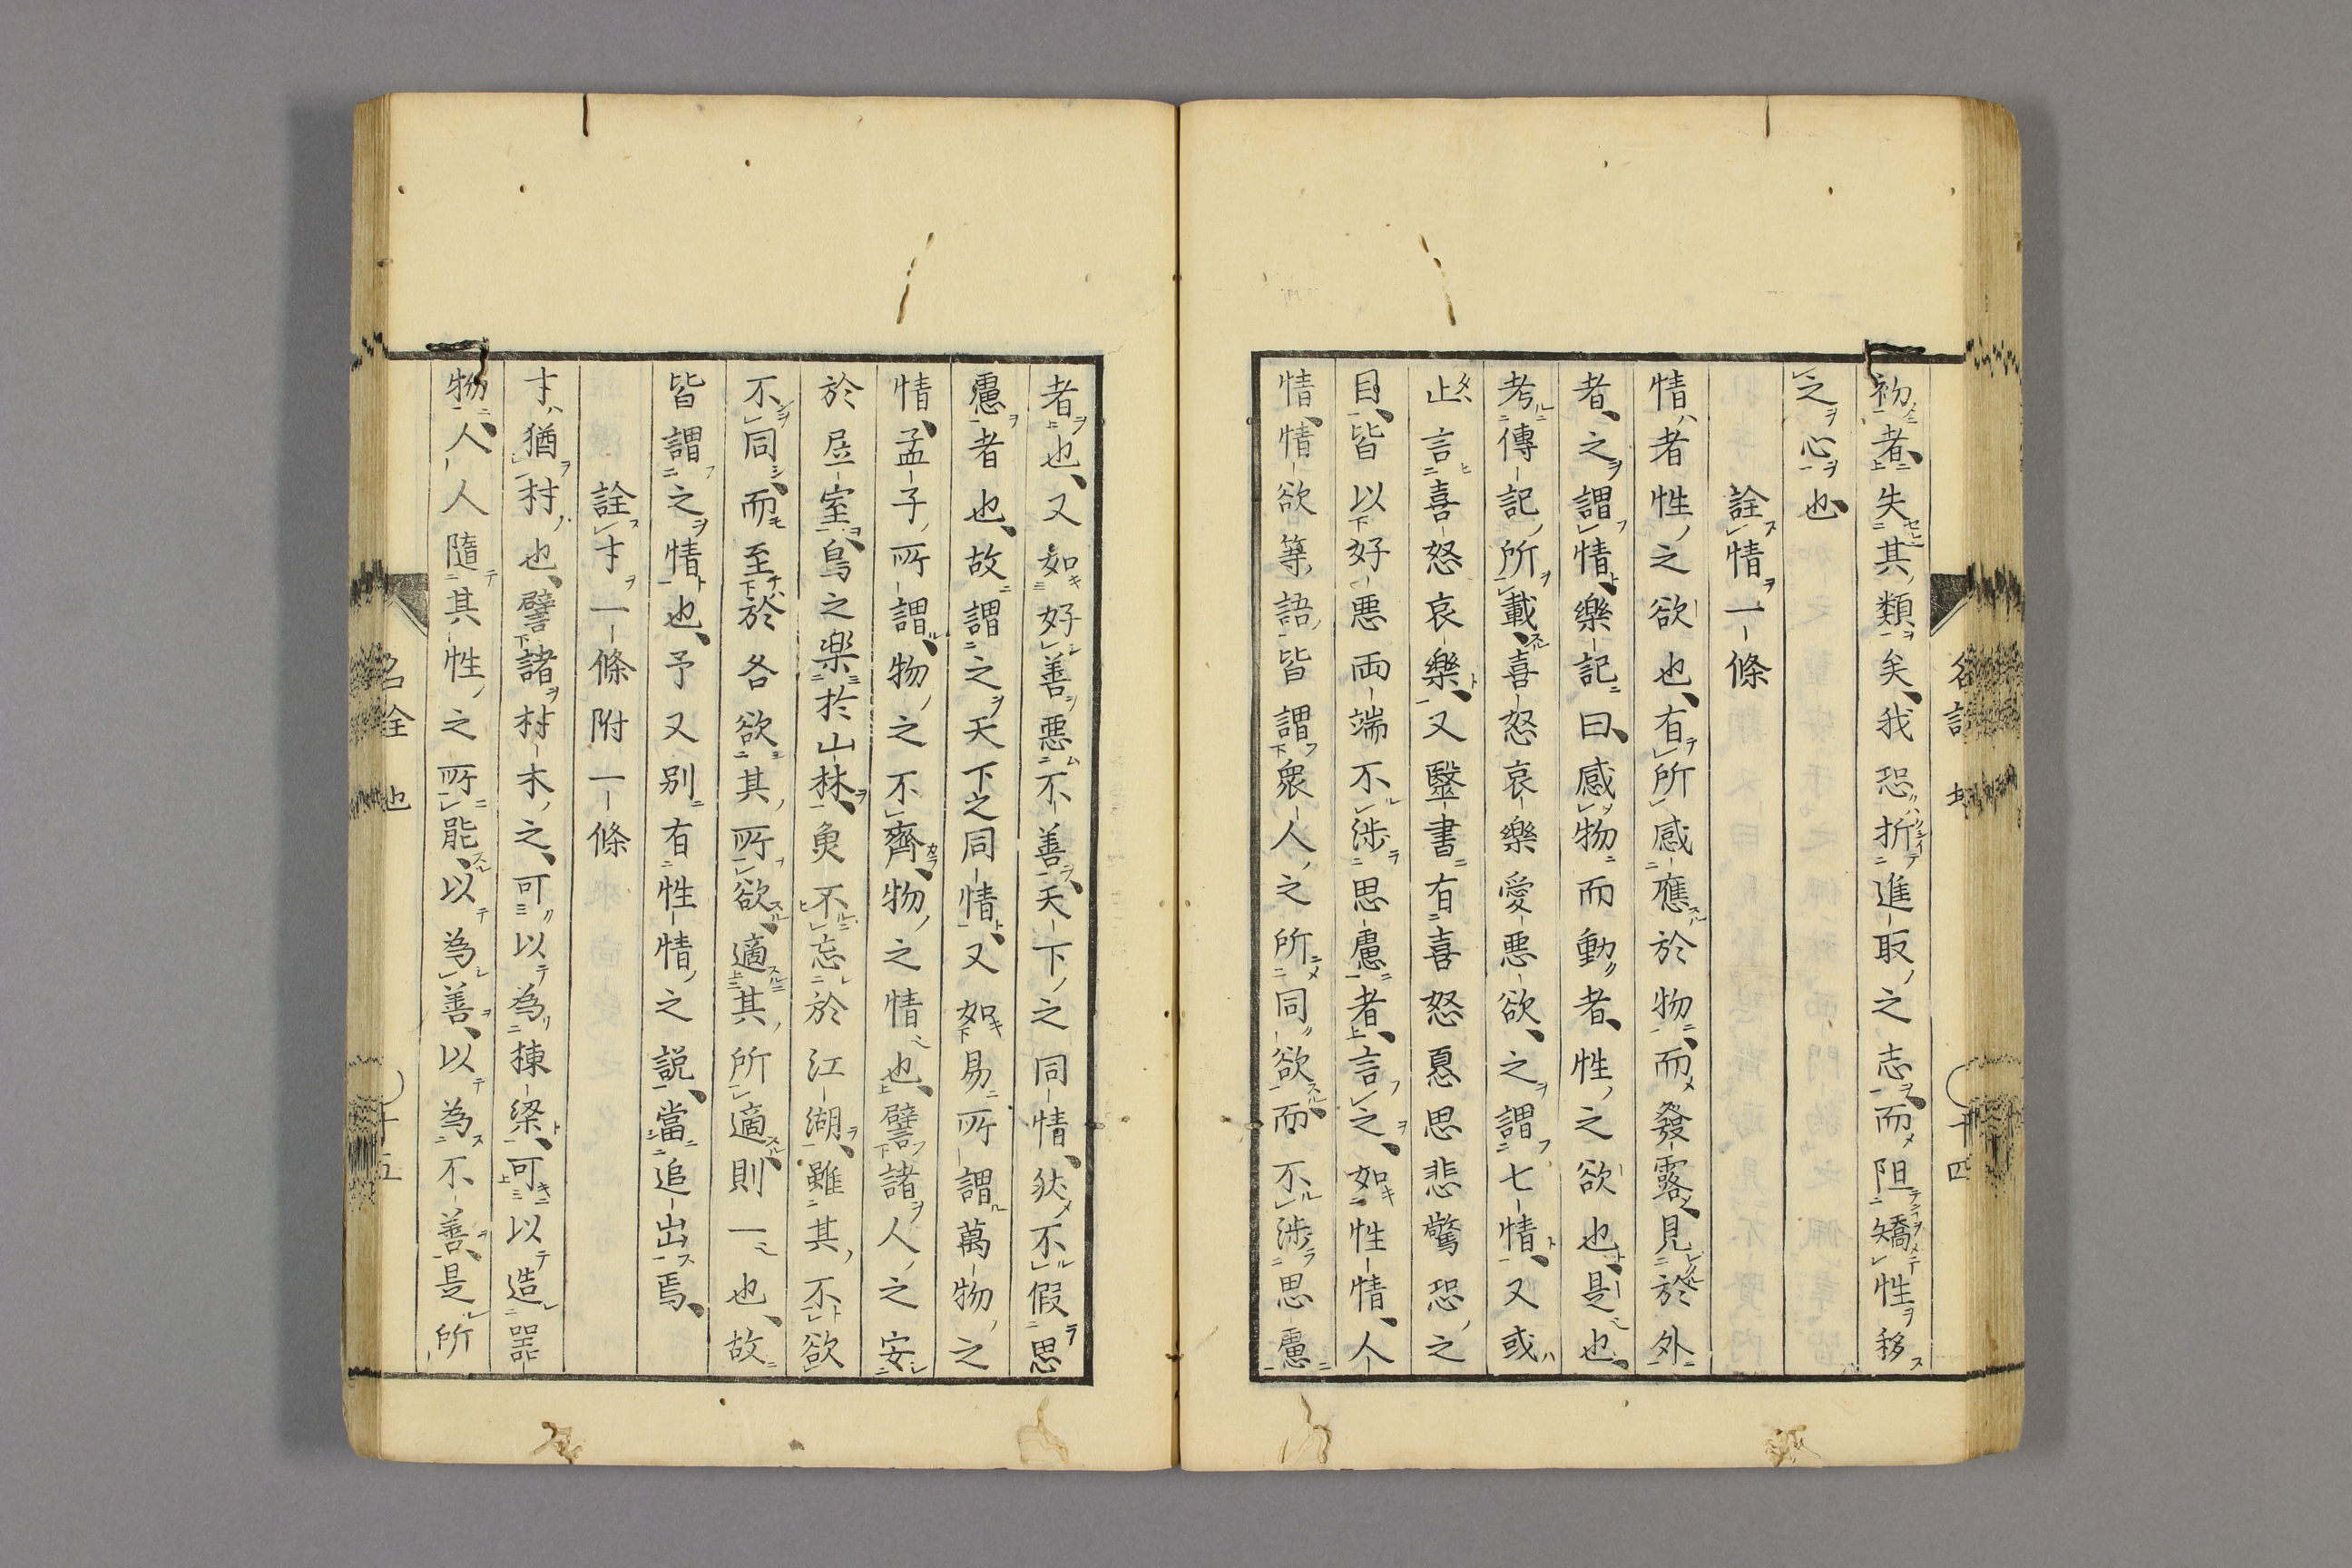 初者失其類矣我恐折進取之志而阻矯性移
之心也
詮情一條
情者性之欲也有所感應於物而發露見於外
者之謂情樂記曰感物而動者性之欲也是也
考傳記所載喜怒哀樂愛悪欲之謂七情又或
止言喜怒哀樂又醫書有喜怒憂思悲驚恐之
目皆以好悪両端不渉思慮者言之如性情人
情情欲等語皆謂衆人之所同欲而不渉思慮
者也又如好善悪不善天下之同情然不假思
慮者也故謂之天下之同情又如易所謂萬物之
情孟子所謂物之不齊物之情也譬諸人之安
於居室鳥之楽於山林魚不忘於江湖雖其不欲
不同而至於各欲其所欲適其所適則一也故
皆謂之情也予又別有性情之説當追出焉
詮才一條附一條
才猶材也譬諸材木之可以為棟梁可以造器
物人人隨其性之所能以為善以為不善是所
十四
名詮 也
十五